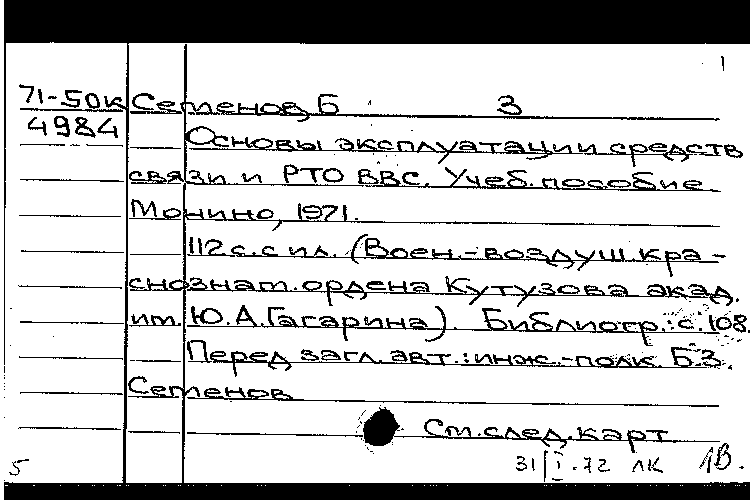 1
71-50к Семенов, Б 3
4984 Основы эксплуатации средств
связи и РТО ВВС. Учеб. пособие.
Монино, 1971.
112 с. с ил. (Воен.-воздуш. кра-
снознам. ордена Кутузова акад.
им. Ю.А.Гагарина). Библиогр.: с. 108.
Перед загл. авт.: инж.-полк. Б.З.
Семенов
См. след. карт.
5 31/I.72 ЛК 1В.